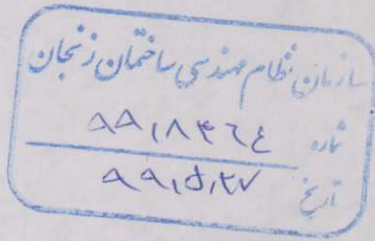 سازمان نظام مهندسی ساختمان زنجان
شماره ۹۹/۸۳۶۴
تاریخ ۹۹/۵/۲۷